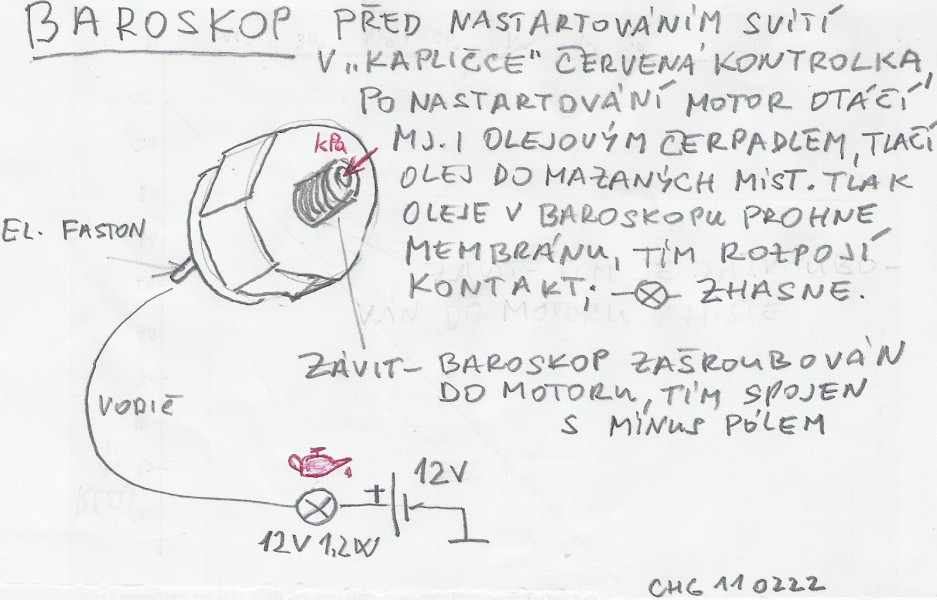 BAROSKOP PŘED NASTARTOVÁNÍM SVÍTÍ
V „KAPLIČCE" ČERVENÁ KONTROLKA,
PO NASTARTOVÁNÍ MOTOR OTÁČÍ
kPa
MJ. I OLEJOVÝM ČERPADLEM, TLAČÍ
OLEJ DO MAZANÝCH MÍST. TLAK
OLEJE V BAROSKOPU PROHNE
EL. FASTON
MEMBRÁNU, TÍM ROZPOJÍ
KONTAKT; ZHASNE.
ZÁVIT – BAROSKOP ZAŠROUBOVÁN
DO MOTORU, TÍM SPOJEN
S MÍNUS PÓLEM
VODIČ
+
12V
12V 1,2W
CHG 110222